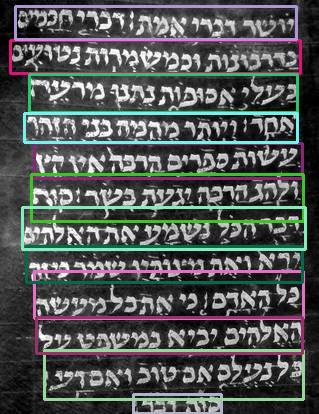 ויושר דברי אמת: דברי חכמים
כדרבונות וכמשמרות נטועים
בעלי אסופות נתנו מרעה
אחד: ויותר מהמה בני הזהר
עשות ספרים הרבה אין קץ
ולהג הרבה יגעת בשר: סוף
דבר הכל נשמע את האלהים
ירא ואת מצותיו שמור כי זה
כל האדם: כי את כל מעשה
האלהים יביא במשפט על
כל נעלם אם טוב ואם רע:
סוף דבר